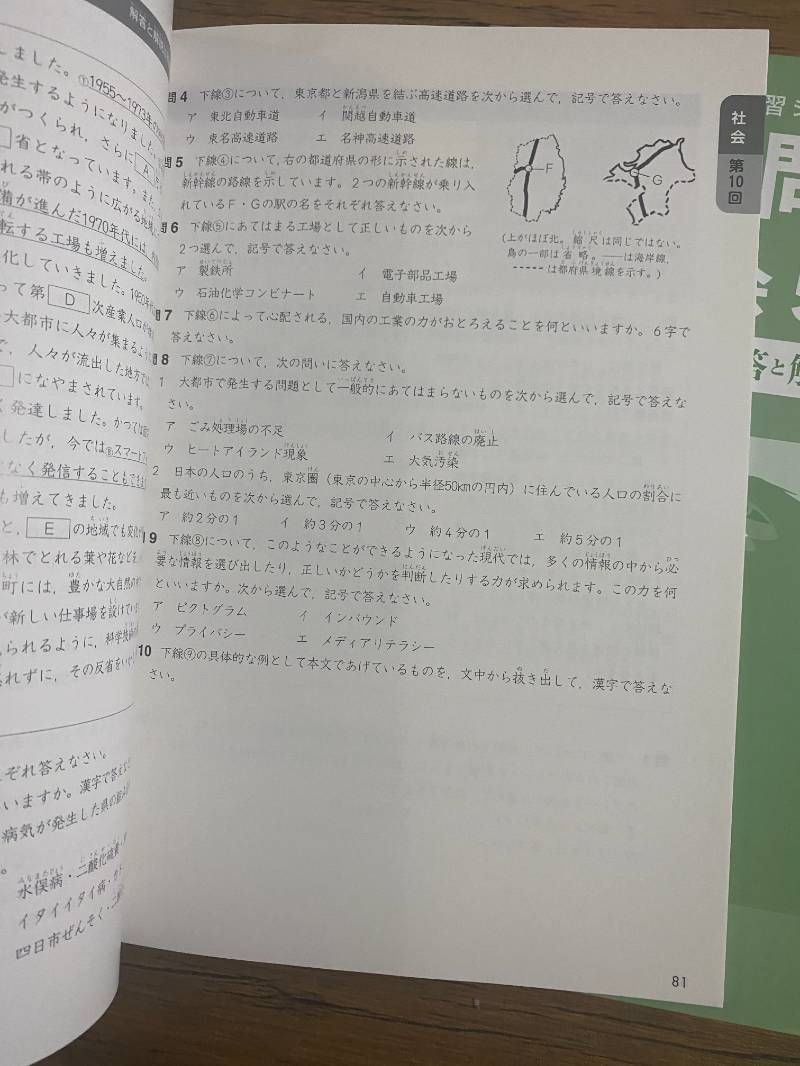 解答と解説
しました。①1955〜1973年の
発生するようになりました。
がつくられ，さらに A
省となっています。また，
れる帯のように広がる地域
備が進んだ1970年代には，
転する工場も増えました。
化していきました。
って第 D 次産業人口が
大都市に人々が集まるよう
で，人々が流出した地方で
になやまされています。
く発達しました。かつては
したが，今では⑧スマート
なく発信することもできま
も増えてきました。
と， E の地域でも
林でとれる葉や花など
町には，豊かな大自然の
が新しい仕事場を設けてい
られるように，科学技術
れずに，その反省をい
ぞれ答えなさい。
いますか。漢字で答え
病気が発生した県の
水俣病・二酸化硫黄
イタイイタイ病・カド
四日市ぜんそく・二
問4 下線③について，東京都と新潟県を結ぶ高速道路を次から選んで，記号で答えなさい。
ア 東北自動車道 イ 関越自動車道
ウ 東名高速道路 エ 名神高速道路
問5 下線④について，右の都道府県の形に示された線は，
新幹線の路線を示しています。2つの新幹線が乗り入
れているF・Gの駅の名をそれぞれ答えなさい。
F
G
(上がほぼ北。縮尺は同じではない。
島の一部は省略。——は海岸線，
-----は都府県境線を示す。)
問6 下線⑤にあてはまる工場として正しいものを次から
2つ選んで，記号で答えなさい。
ア 製鉄所 イ 電子部品工場
ウ 石油化学コンビナート エ 自動車工場
問7 下線⑥によって心配される，国内の工業の力がおとろえることを何といいますか。6字で
答えなさい。
問8 下線⑦について，次の問いに答えなさい。
1 大都市で発生する問題として一般的にあてはまらないものを次から選んで，記号で答えな
さい。
ア ごみ処理場の不足 イ バス路線の廃止
ウ ヒートアイランド現象 エ 大気汚染
2 日本の人口のうち，東京圏（東京の中心から半径50kmの円内）に住んでいる人口の割合に
最も近いものを次から選んで，記号で答えなさい。
ア 約2分の1 イ 約3分の1 ウ 約4分の1 エ 約5分の1
問9 下線⑧について，このようなことができるようになった現代では，多くの情報の中から必
要な情報を選び出したり，正しいかどうかを判断したりする力が求められます。この力を何
といいますか。次から選んで，記号で答えなさい。
ア ピクトグラム イ インバウンド
ウ プライバシー エ メディアリテラシー
10 下線⑨の具体的な例として本文であげているものを，文中から抜き出して，漢字で答えな
さい。
社会
第10回
81
習
問
答と解